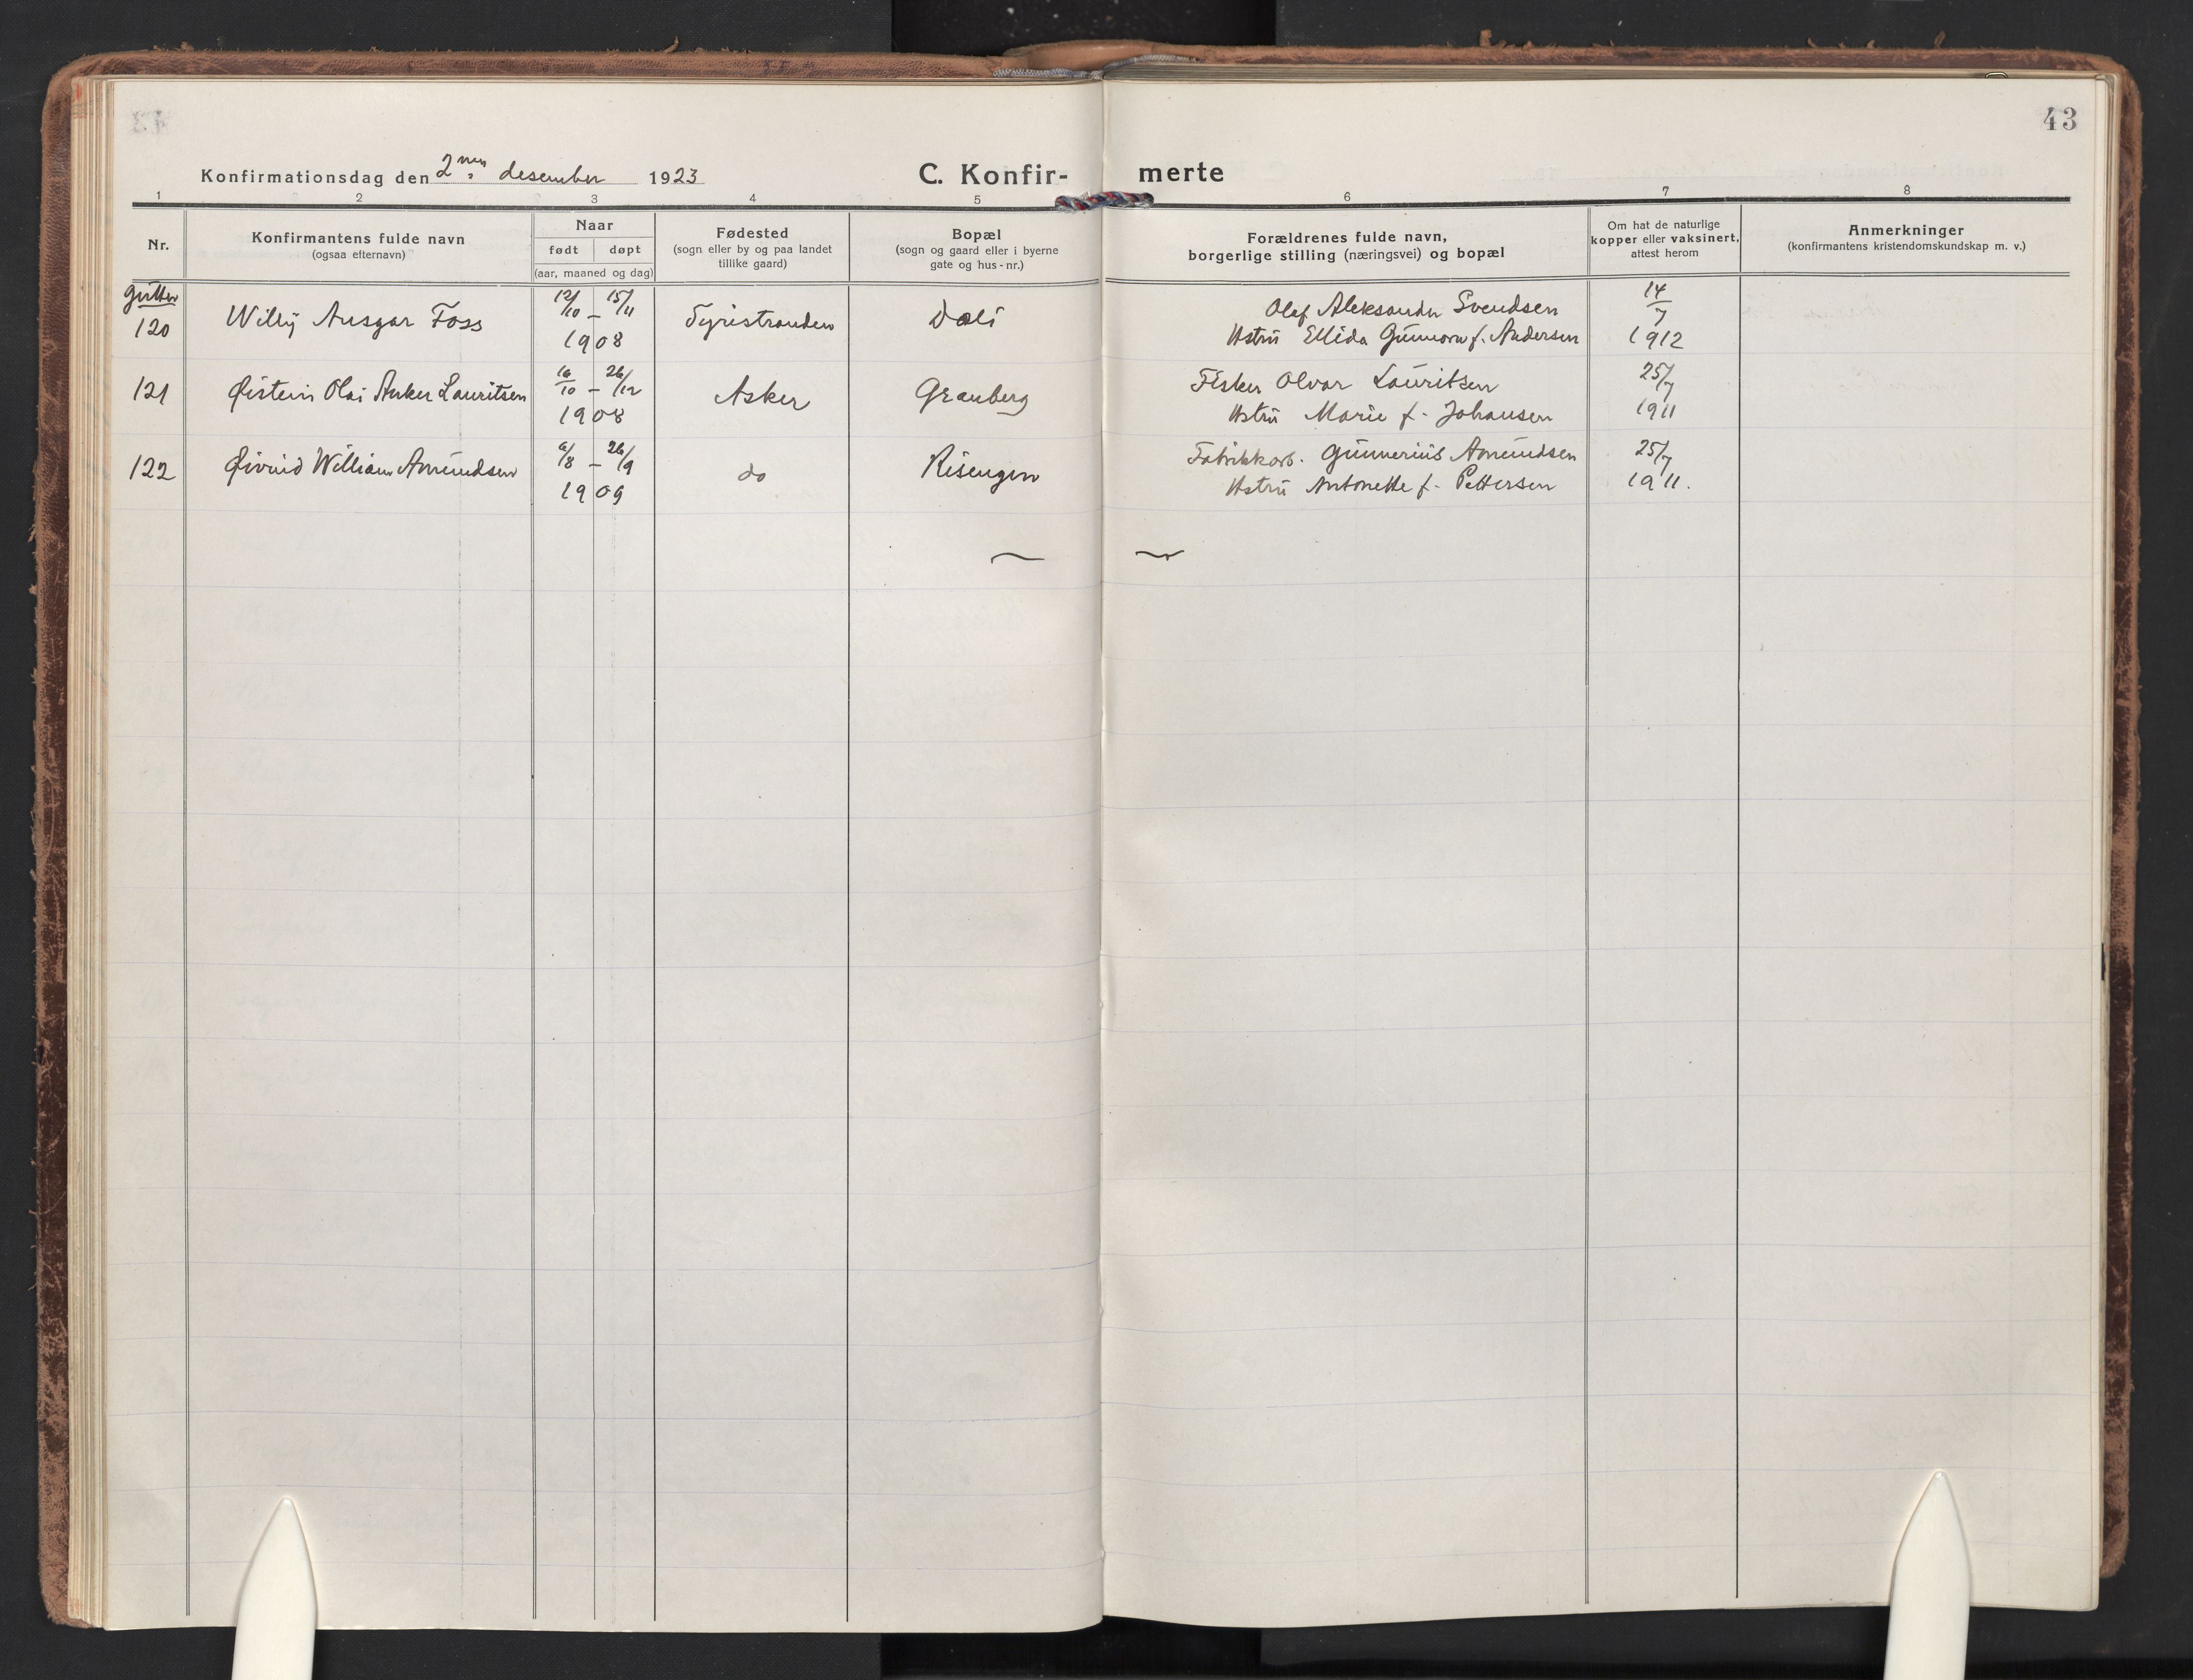 43
Konfirmationsdag den 2nen desember 1923
C. Konfir- merte
1 2 3 4 5 6 7 8
Nr.
Konfirmantens fulde navn
(ogsaa efternavn)
Naar
født døpt
(aar, maaned og dag)
Fødested
(sogn eller by og paa landet
tillike gaard)
Bopæl
(sogn og gaard eller i byerne
gate og hus-nr.)
Forældrenes fulde navn,
borgerlige stilling (næringsvei) og bopæl
Om hat de naturlige
kopper eller vaksinert,
attest herom
Anmerkninger
(konfirmantens kristendomskundskap m. v.)
Gutter
120 Willy Ansgar Foss 12/10 – 15/11 Tyristranden Dæli Olaf Aleksander Svendsen 14/7
1908 Hstru Ellida Gunnora f. Andersen 1912
121 Øistein Olai Anker Lauritsen 16/10 – 26/12 Asker Granberg Fisker Olvar Lauritsen 25/7
1908 Hstru Marie f. Johansen 1911
122 Øivind William Amundsen 6/8 – 26/9 do Risengen Fabrikkarb. Gunnerius Amundsen 25/7
1909 Hstru Antonette f. Pettersen 1911.